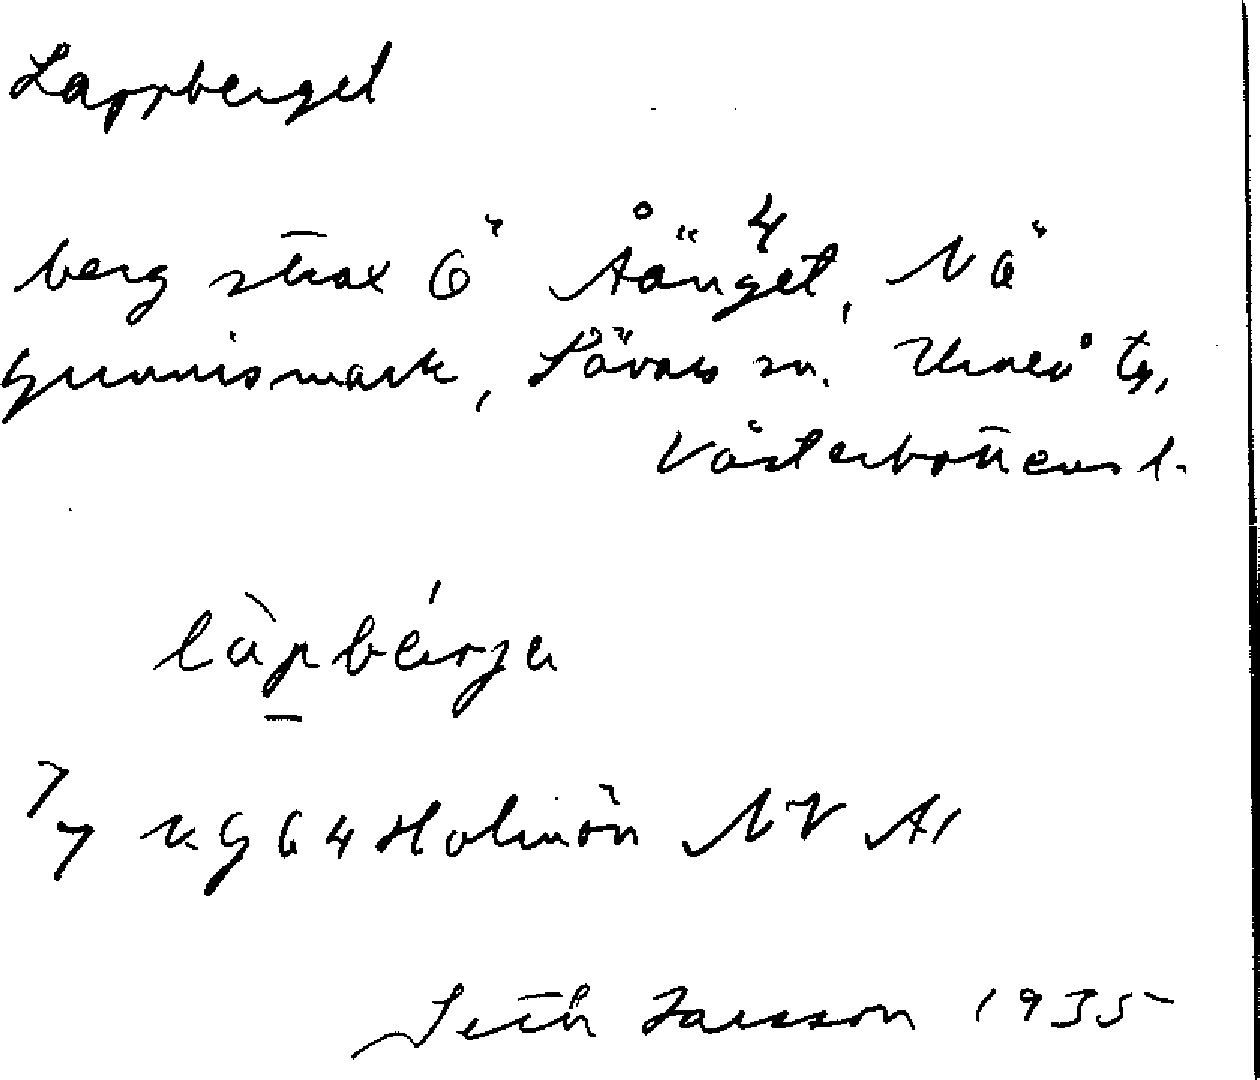 Lappberget
berg strax Ö Åänget, NÖ
Gunnismark, Sävars sn. Umeå tg,
Västerbottens l.
làpbérja
7/7 64 Holmön NV
Seth Jansson 1935